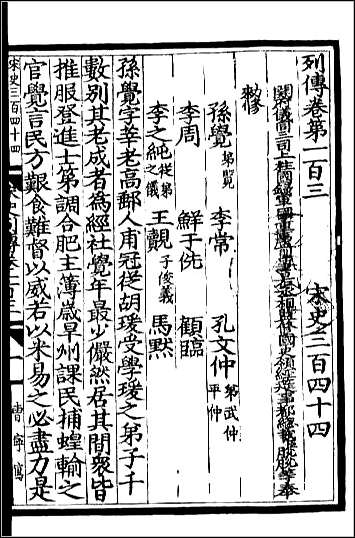 列傳卷第一百三 宋史三百四十四
開府儀同三司上柱國錄軍國重事前中書右丞相監修國史領經筵事都總裁臣脫脫等奉
敕修
孫覺弟覽 李常 孔文仲弟武仲 平仲
李周 鮮于侁 顧臨
李之純從弟之儀 王覿子俊義 馬默
孫覺字莘老高郵人甫冠從胡瑗受學瑗之弟子千
數別其老成者為經社覺年最少儼然居其間衆皆
推服登進士第調合肥主簿歲旱州課民捕蝗輸之
官覺言民方艱食難督以威若以米易之必盡力是
宋史三百四十四